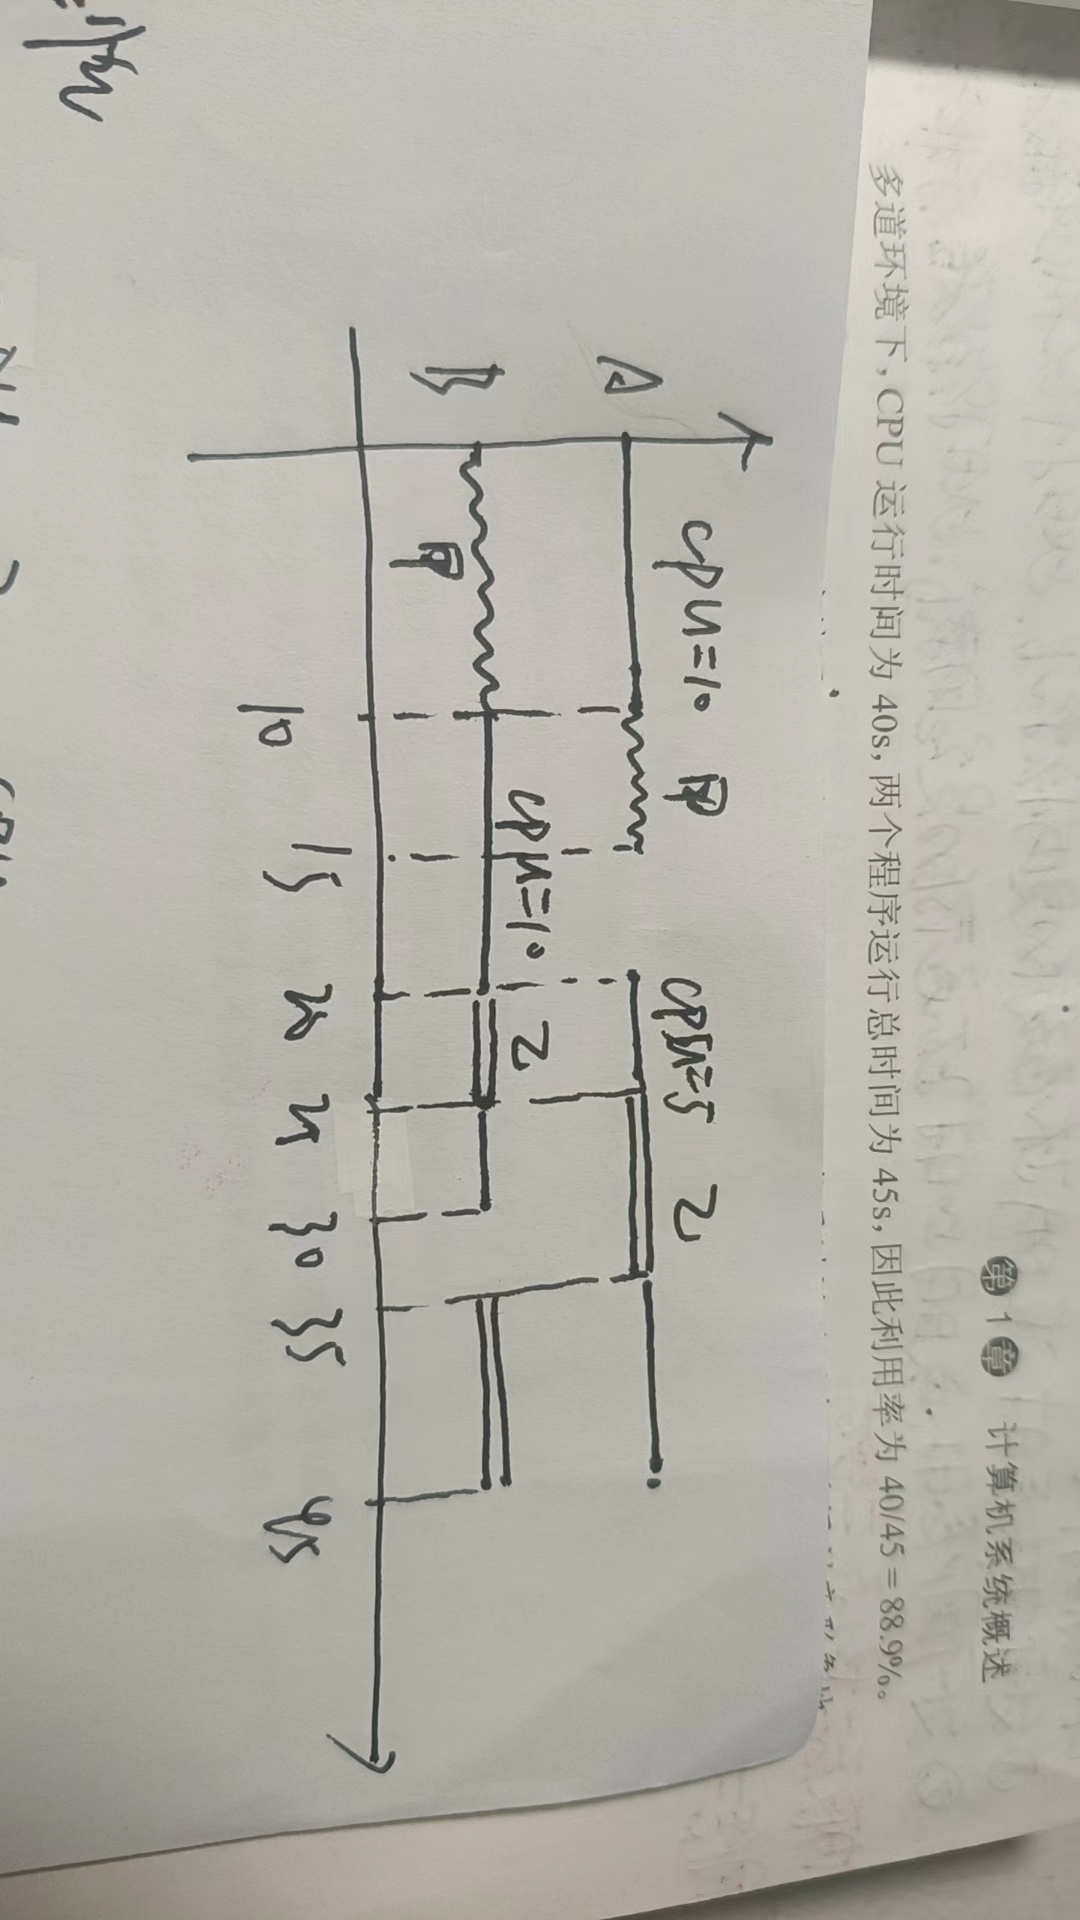 第1章 计算机系统概述
多道环境下，CPU 运行时间为 40s，两个程序运行总时间为 45s，因此利用率为 40/45＝88.9%。
CPU=10 甲 CPU=5 乙
A
B
甲 CPU=10 乙
10 15 20 25 30 35 45